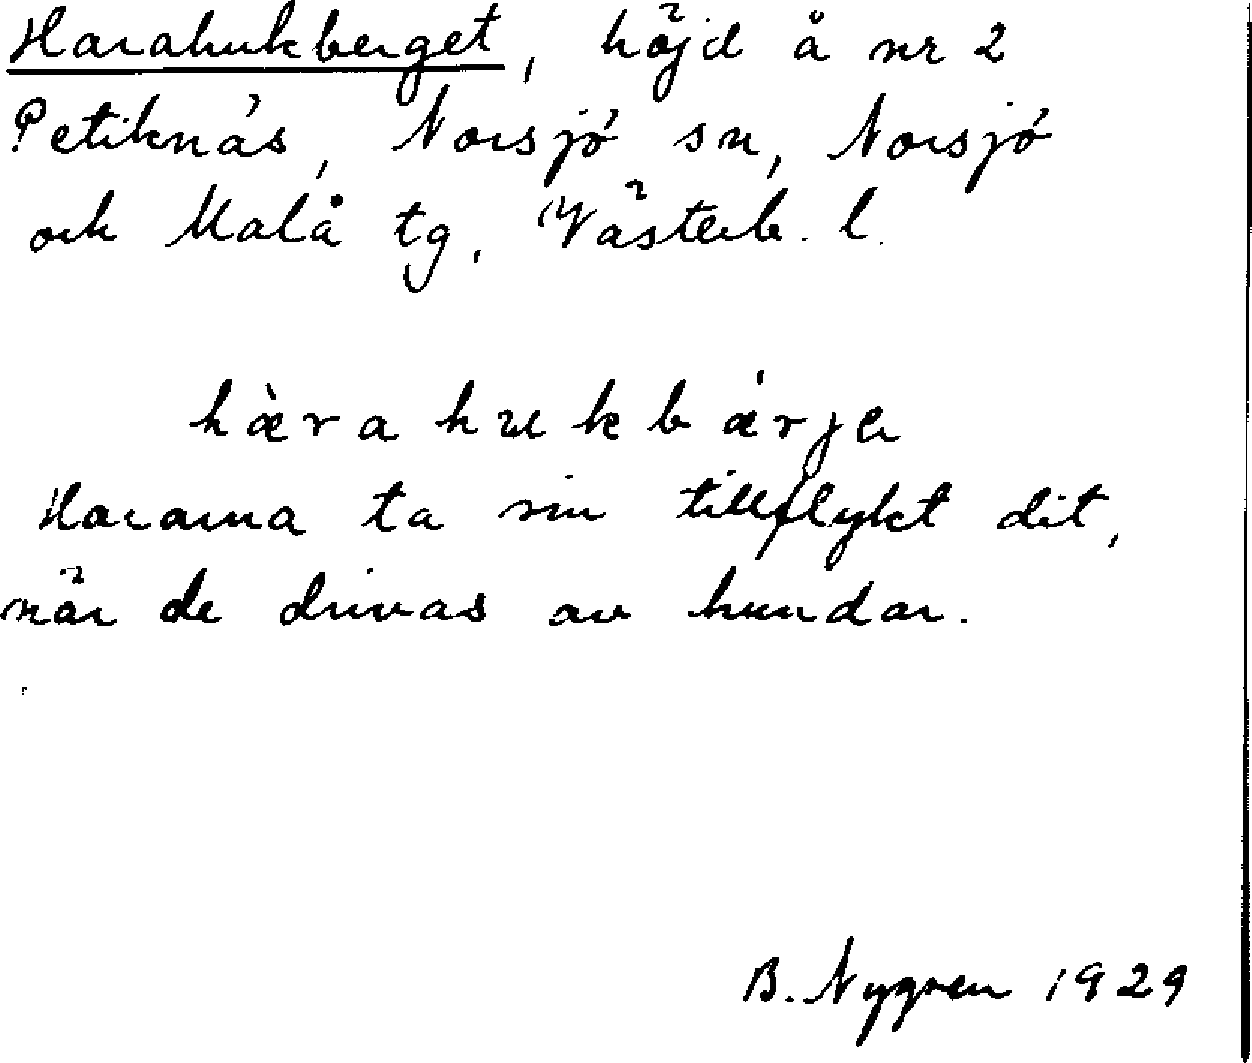 Harahukberget, höjd å nr 2
Petiknäs, Norsjö sn, Norsjö
och Malå tg, Västerb. l.
hàrahukbárjɐ
Hararna ta sin tillflykt dit,
när de drivas av hundar.
B. Nygren 1929